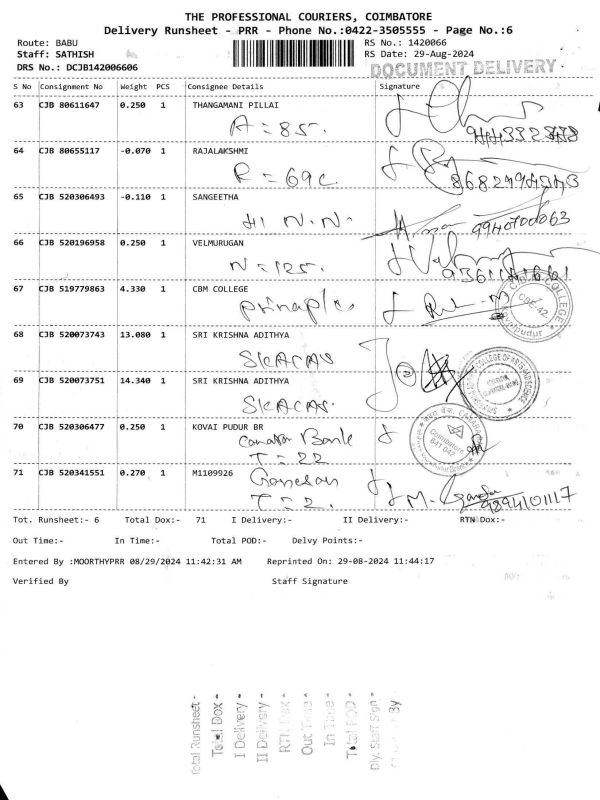 THE PROFESSIONAL COURIERS, COIMBATORE
Delivery Runsheet - PRR - Phone No.:0422-3505555 - Page No.:6
Route: BABU RS No.: 1420066
Staff: SATHISH RS Date: 29-Aug-2024
DRS No.: DCJB142006606 DOCUMENT DELIVERY
S No Consignment No Weight PCS Consignee Details Signature
63 CJB 80611647 0.250 1 THANGAMANI PILLAI
A = 85.
64 CJB 80655117 -0.070 1 RAJALAKSHMI
R = 69c
65 CJB 520306493 -0.110 1 SANGEETHA
41 N.N. 9940700063
66 CJB 520196958 0.250 1 VELMURUGAN
N = 125.
67 CJB 519779863 4.330 1 CBM COLLEGE
68 CJB 520073743 13.080 1 SRI KRISHNA ADITHYA
SKACAS
69 CJB 520073751 14.340 1 SRI KRISHNA ADITHYA
SKACAS.
70 CJB 520306477 0.250 1 KOVAI PUDUR BR
Canara Bank
T = 22
Coimbatore
641 042
71 CJB 520341551 0.270 1 M1109926
Ganesan
T = 2. 9894101117
Tot. Runsheet:- 6 Total Dox:- 71 I Delivery:- II Delivery:- RTN Dox:-
Out Time:- In Time:- Total POD:- Delvy Points:-
Entered By :MOORTHYPRR 08/29/2024 11:42:31 AM Reprinted On: 29-08-2024 11:44:17
Verified By Staff Signature
Total Runsheet -
Total Dox -
I Delivery -
II Delivery -
RTN Dox -
Out Time -
In Time -
Total POD -
Dly. Staff Sign -
By -